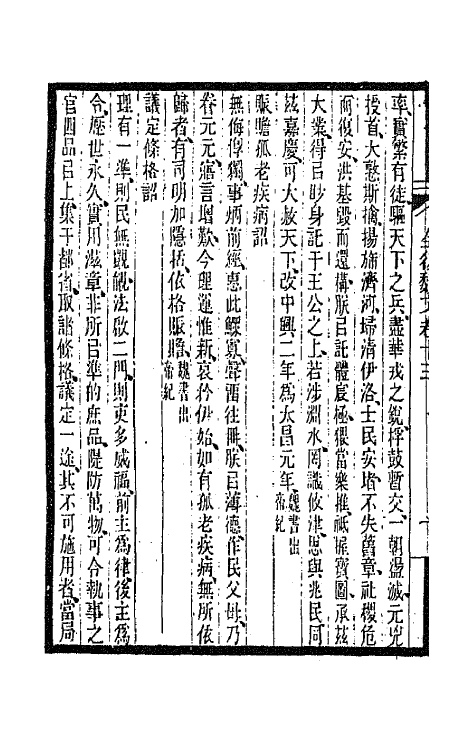 率實繁有徒驅天下之兵盡華戎之銳桴鼓暫交一朝盪滅元兇
授首大憝斯擒揚旆濟河埽清伊洛士民安堵不失舊章社稷危
而復安洪基毀而還構朕㠯託體宸極猥當樂推祗握寶圖承茲
大業得㠯眇身託于王公之上若涉淵水罔識攸津思與兆民同
茲嘉慶可大赦天下改中興二年為太昌元年魏書出帝紀
賑贍孤老疾病詔
無侮惸獨事炳前經惠此鰥寡聲畱往冊朕㠯薄德作民父母乃
眷元元寤言增歎今理運惟新哀矜伊始如有孤老疾病無所依
歸者有司明加隱括依格賑贍魏書出帝紀
議定條格詔
理有一準則民無覬覦法啟二門則吏多威福前主為律後主為
令歷世永久實用滋章非所㠯準的庶品隄防萬物可令執事之
官四品㠯上集于都省取諸條格議定一途其不可施用者當局
全後魏文卷十三